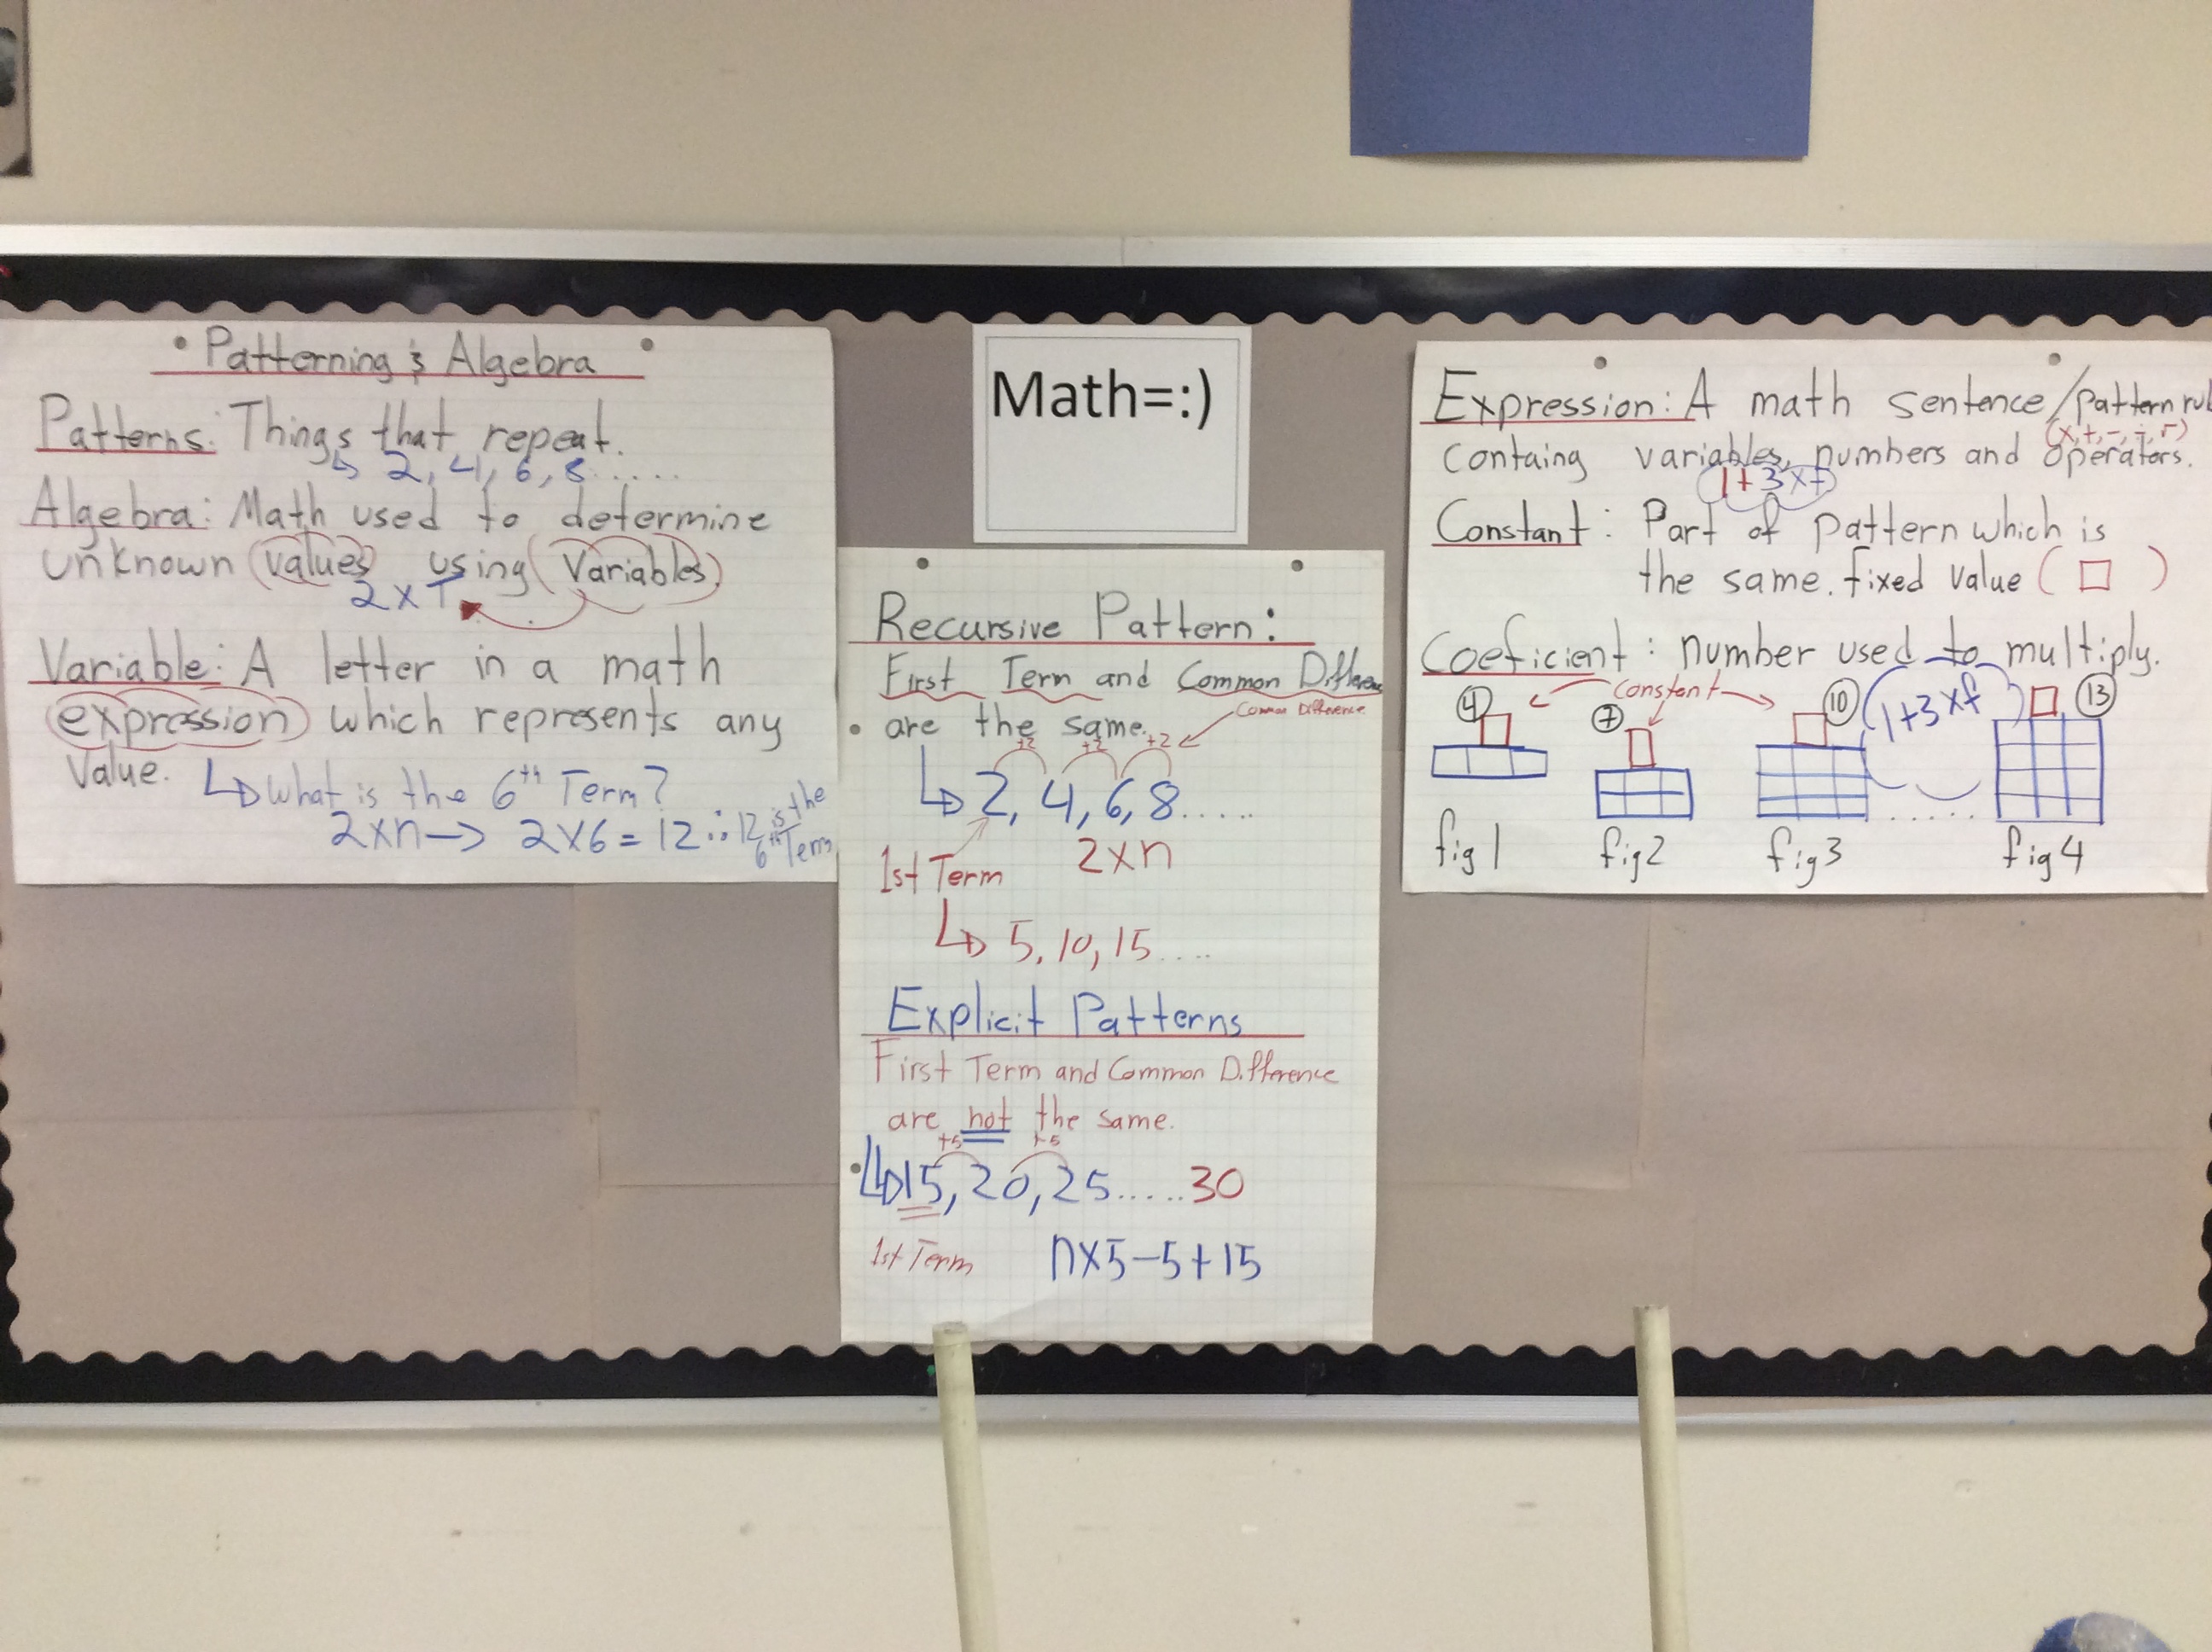 Patterning & Algebra
Patterns: Things that repeat.
↳ 2, 4, 6, 8.....
Algebra: Math used to determine
unknown (values) using (Variables)
2xT
Variable: A letter in a math
(expression) which represents any
Value.
↳ What is the 6th Term?
2xn → 2x6 = 12 ∴ 12 is the
6th Term
Math=:)
Recursive Pattern:
First Term and Common Difference
are the same.
Common Difference
+2 +2 +2
↳ 2, 4, 6, 8.....
1st Term
2xn
↳ 5, 10, 15....
Explicit Patterns
First Term and Common Difference
are not the same.
+5 +5
↳ 15, 20, 25.....30
1st Term
nx5-5+15
Expression: A math sentence/pattern rul
(x,+,-,÷,√)
Containg variables, numbers and operators.
1+3xf
Constant: Part of pattern which is
the same. fixed value (□)
Coeficient: number used to multiply.
constant
4
7
10
(1+3xf)
13
.....
fig 1
fig 2
fig 3
fig 4